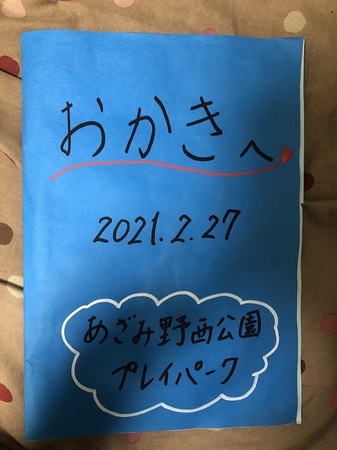 おかきへ
2021.2.27
あざみ野西公園
プレイパーク